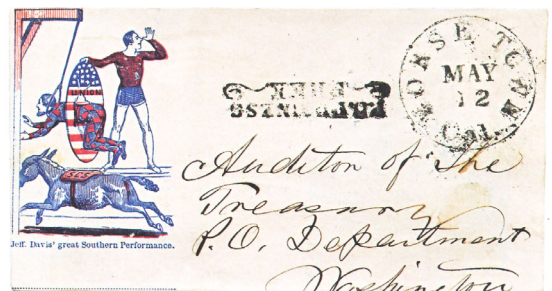 UNION
Jeff. Davis' great Southern Performance.
HORSE TOWN
MAY
12
Cal.
POST BUSINESS
FREE
Auditor of the
Treasury
P.O. Department
Washington